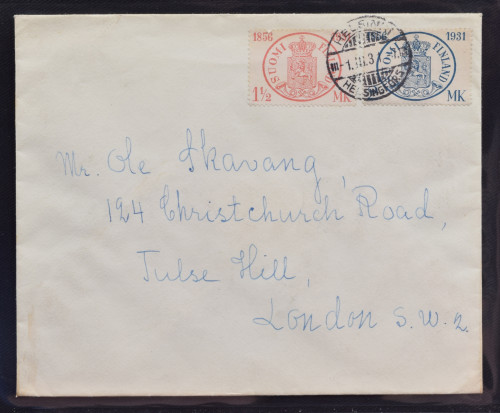 1856
SUOMI FINLAND
1½ MK
HELSINKI
-1.III.3
HELSINGFORS
1931
FINLAND
MK
Mr. Ole Skavang,
124 Christchurch Road,
Tulse Hill,
London S.W.2